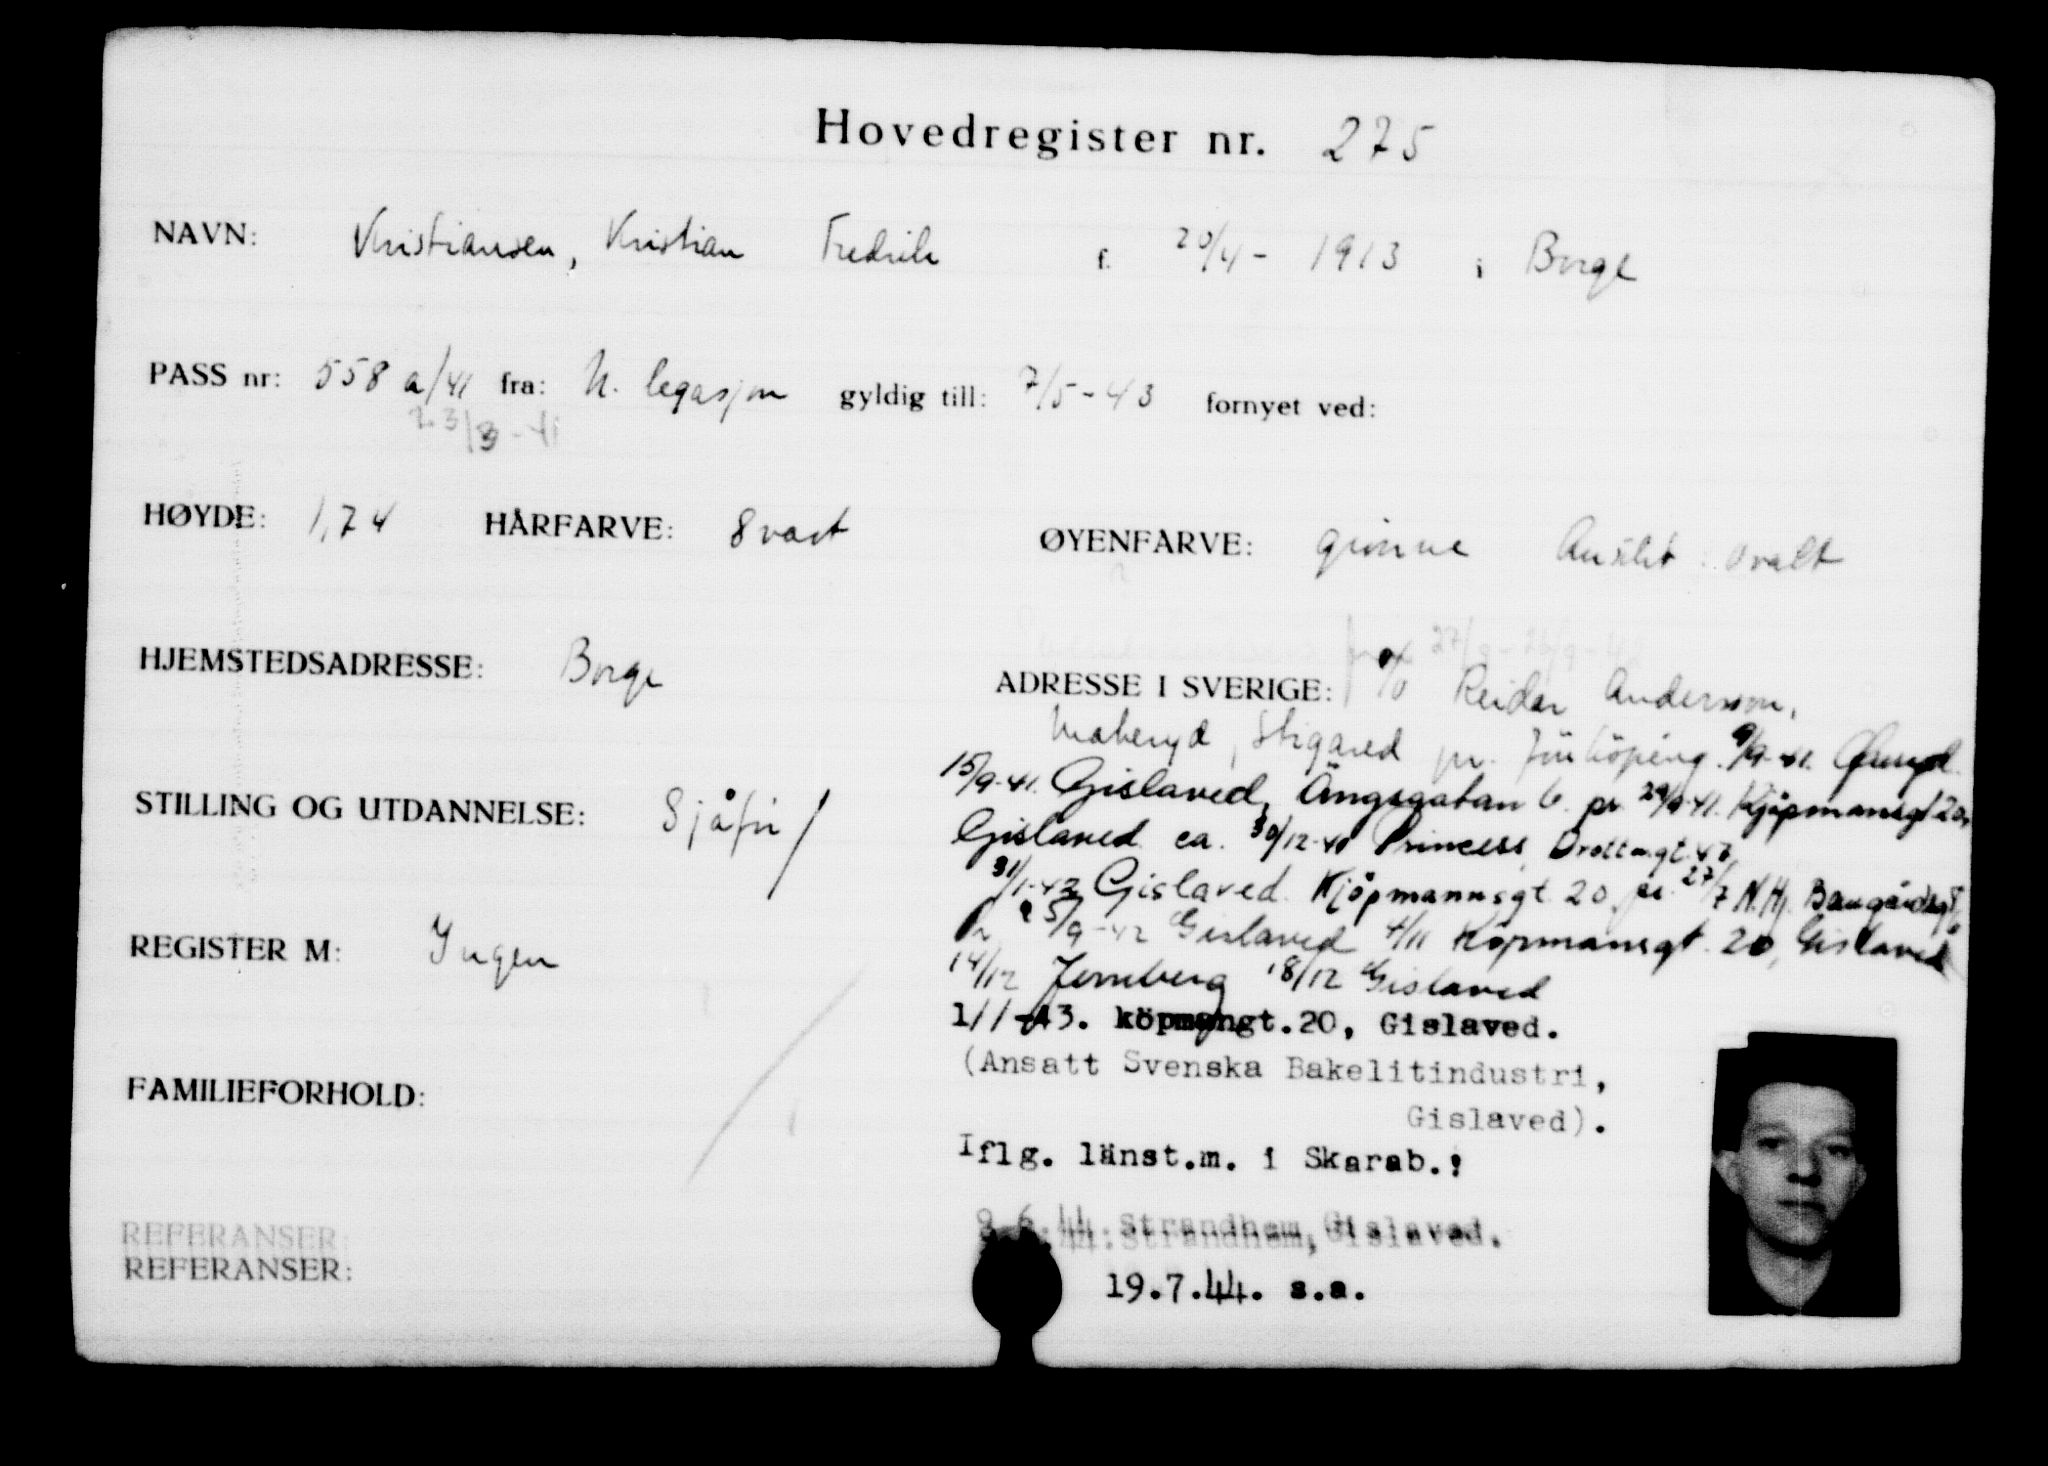 Hovedregister nr. 275
NAVN: Kristiansen, Kristian Fredrik f. 20/4 - 1913 i Borge
PASS nr: 558 a/41 fra: N. legasjon gyldig till: 7/5-43 fornyet ved:
HØYDE: 1,74 HÅRFARVE: Svart ØYENFARVE: grønne Ansikt: ovalt
HJEMSTEDSADRESSE: Borge
ADRESSE I SVERIGE: c/o Reidar Andersson,
Stigared pr. Jönköping. 9/9-41.
15/9-41. Gislaved, Ängsgatan 6. pr 29/9-41. Kjøpmansgt 20,
STILLING OG UTDANNELSE: Sjåfør
Gislaved ca. 30/12-41 Princess Drottn.gt. 47
31/1-42 Gislaved Kjöpmannsgt 20 pr. 27/7 N.Hj.
REGISTER M: Ingen
25/9-42 Gislaved 4/11 Köpmansgt. 20, Gislaved
14/12 Jernberg 18/12 Gislaved
1/1-43. köpmangt.20, Gislaved.
(Ansatt Svenska Bakelitindustri,
Gislaved).
FAMILIEFORHOLD:
Iflg. länst.m. i Skarab.:
9.6.44. Strandhem, Gislaved.
REFERANSER:
REFERANSER:
19.7.44. s.a.